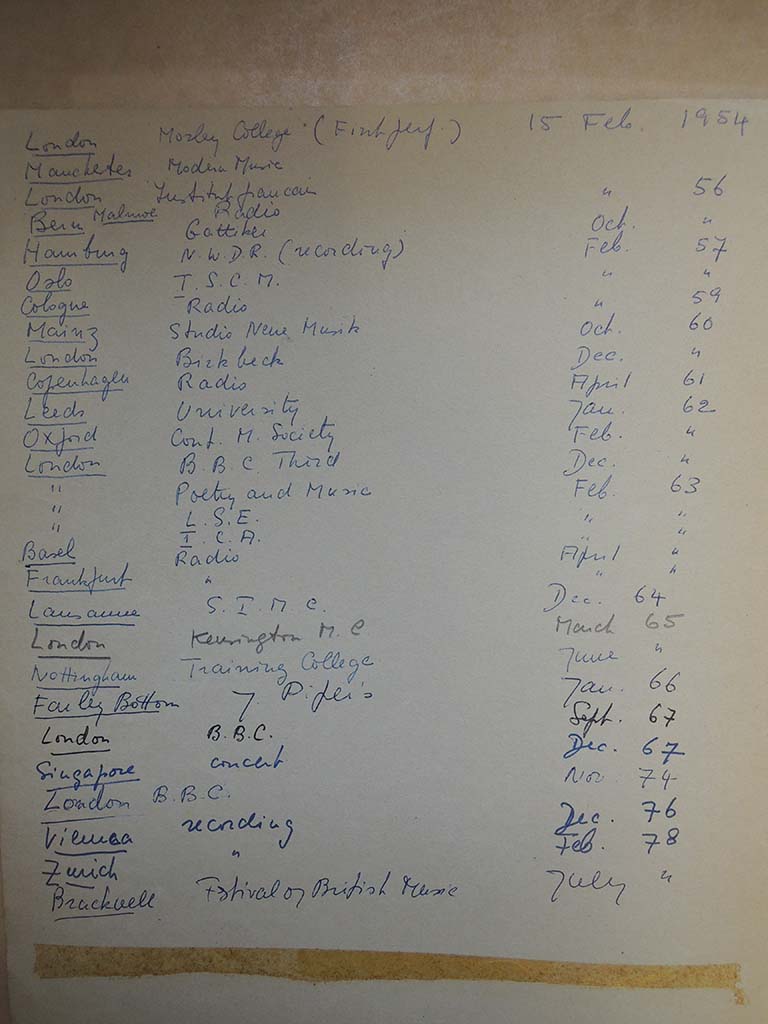 London Morley College (First perf.) 15 Feb. 1954
Manchester Modern Music
London Institut francais " 56
Bern Malmoe Radio
Gattiker Oct. "
Hamburg N.W.D.R. (recording) Feb. 57
Oslo I.S.C.M. " "
Cologne Radio " 59
Mainz Studio Neue Musik Oct. 60
London Birkbeck Dec. "
Copenhagen Radio April 61
Leeds University Jan. 62
Oxford Cont. M. Society Feb. "
London B.B.C. Third Dec. "
" Poetry and Music Feb. 63
" L.S.E. " "
" I.C.A. " "
Basel Radio April "
Frankfurt " " "
Lausanne S.I.M.C. Dec. 64
London Kensington M.C March 65
Nottingham Training College June "
Farley Bottom J. Piper's Jan. 66
London B.B.C. Sept. 67
Singapore concert Dec. 67
London B.B.C. Nov. 74
Vienna recording Dec. 76
Zurich " Feb. 78
Bracknell Festival of British Music July "